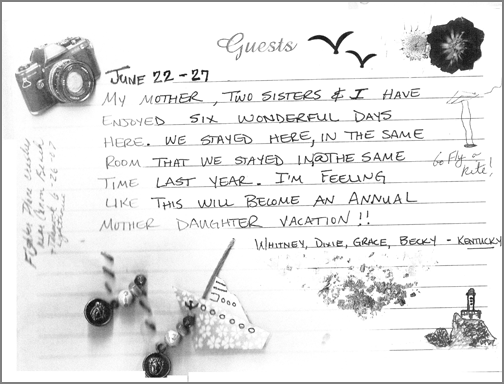 Guests
JUNE 22-27
MY MOTHER, TWO SISTERS & I HAVE
ENJOYED SIX WONDERFUL DAYS
HERE. WE STAYED HERE, IN THE SAME
ROOM THAT WE STAYED IN@THE SAME
TIME LAST YEAR. I'M FEELING
LIKE THIS WILL BECOME AN ANNUAL
MOTHER DAUGHTER VACATION!!
WHITNEY, DIXIE, GRACE, BECKY - KENTUCKY
Go Fly a
Kite!